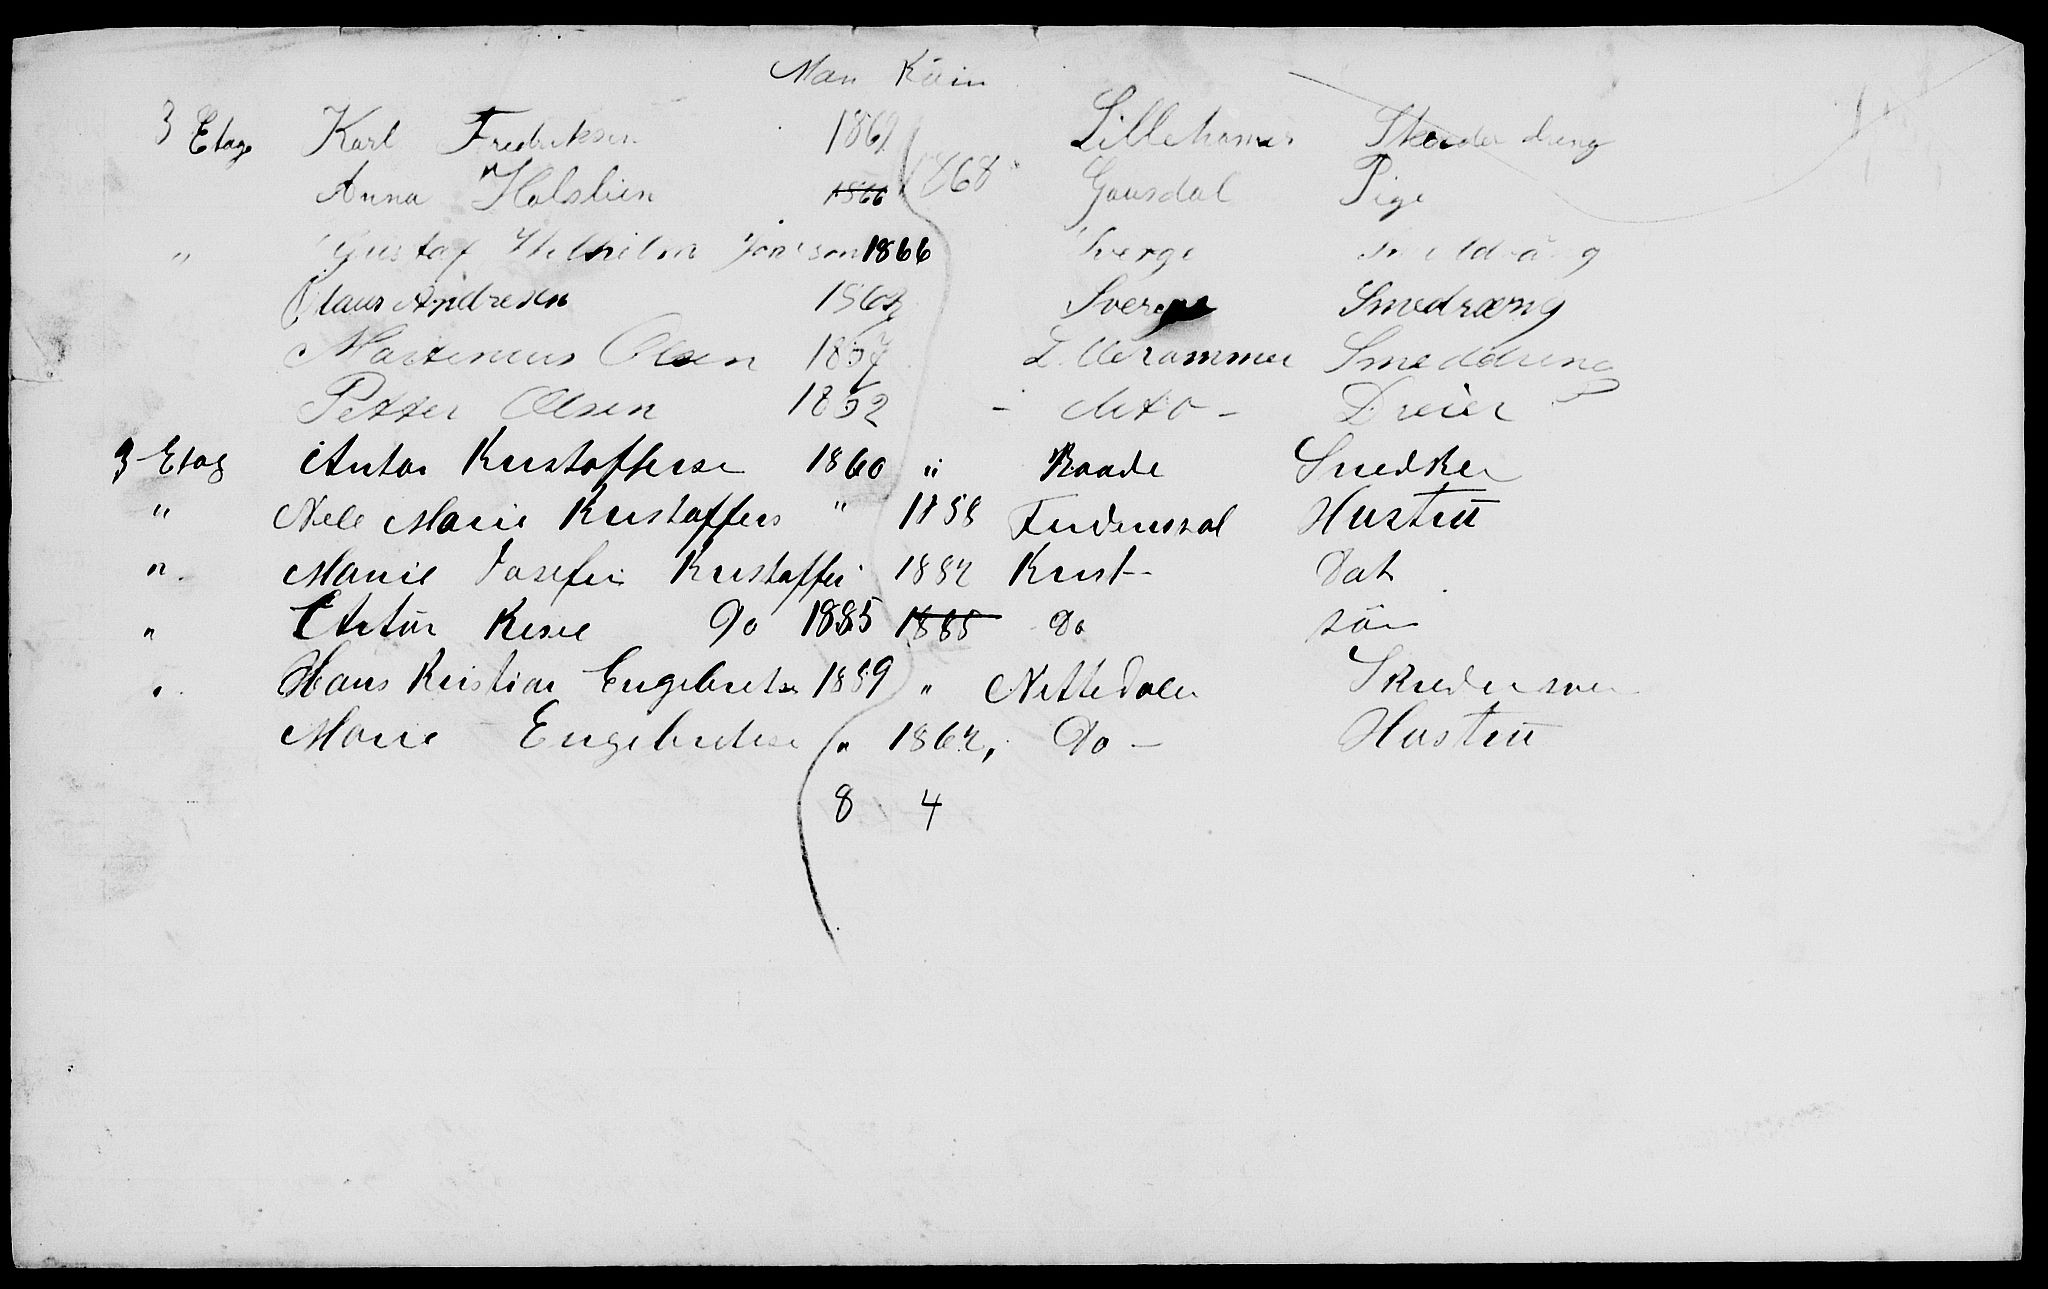 Man Kvin
3 Etage Karl Fredriksen 1869 Lillehamer Skreder dreng
Anna Holslien 1866 1868 Gausdal Pige
" Gustaf Wilhelm Jonsson 1866 Sverge
Claus Andresen Sverge Smedræng
Martinius Olsen 1857 Lillehammer Smeddreng
Petter Olsen 1852 - dito - Dreier
3 Etag Anton Kristoffersen 1860 " Raade Snedker
" Nele Marie Kristoffers " 1858 Hustru
" Marie Josefin Kristoffer 1882 Krist- Dat
" Artur Do 1885 1885 Do sön
" Hans Kristian Engebretsen 1859 " Nittedalen
Marie Engebretsen " 1862, Do - Hustru
8 4